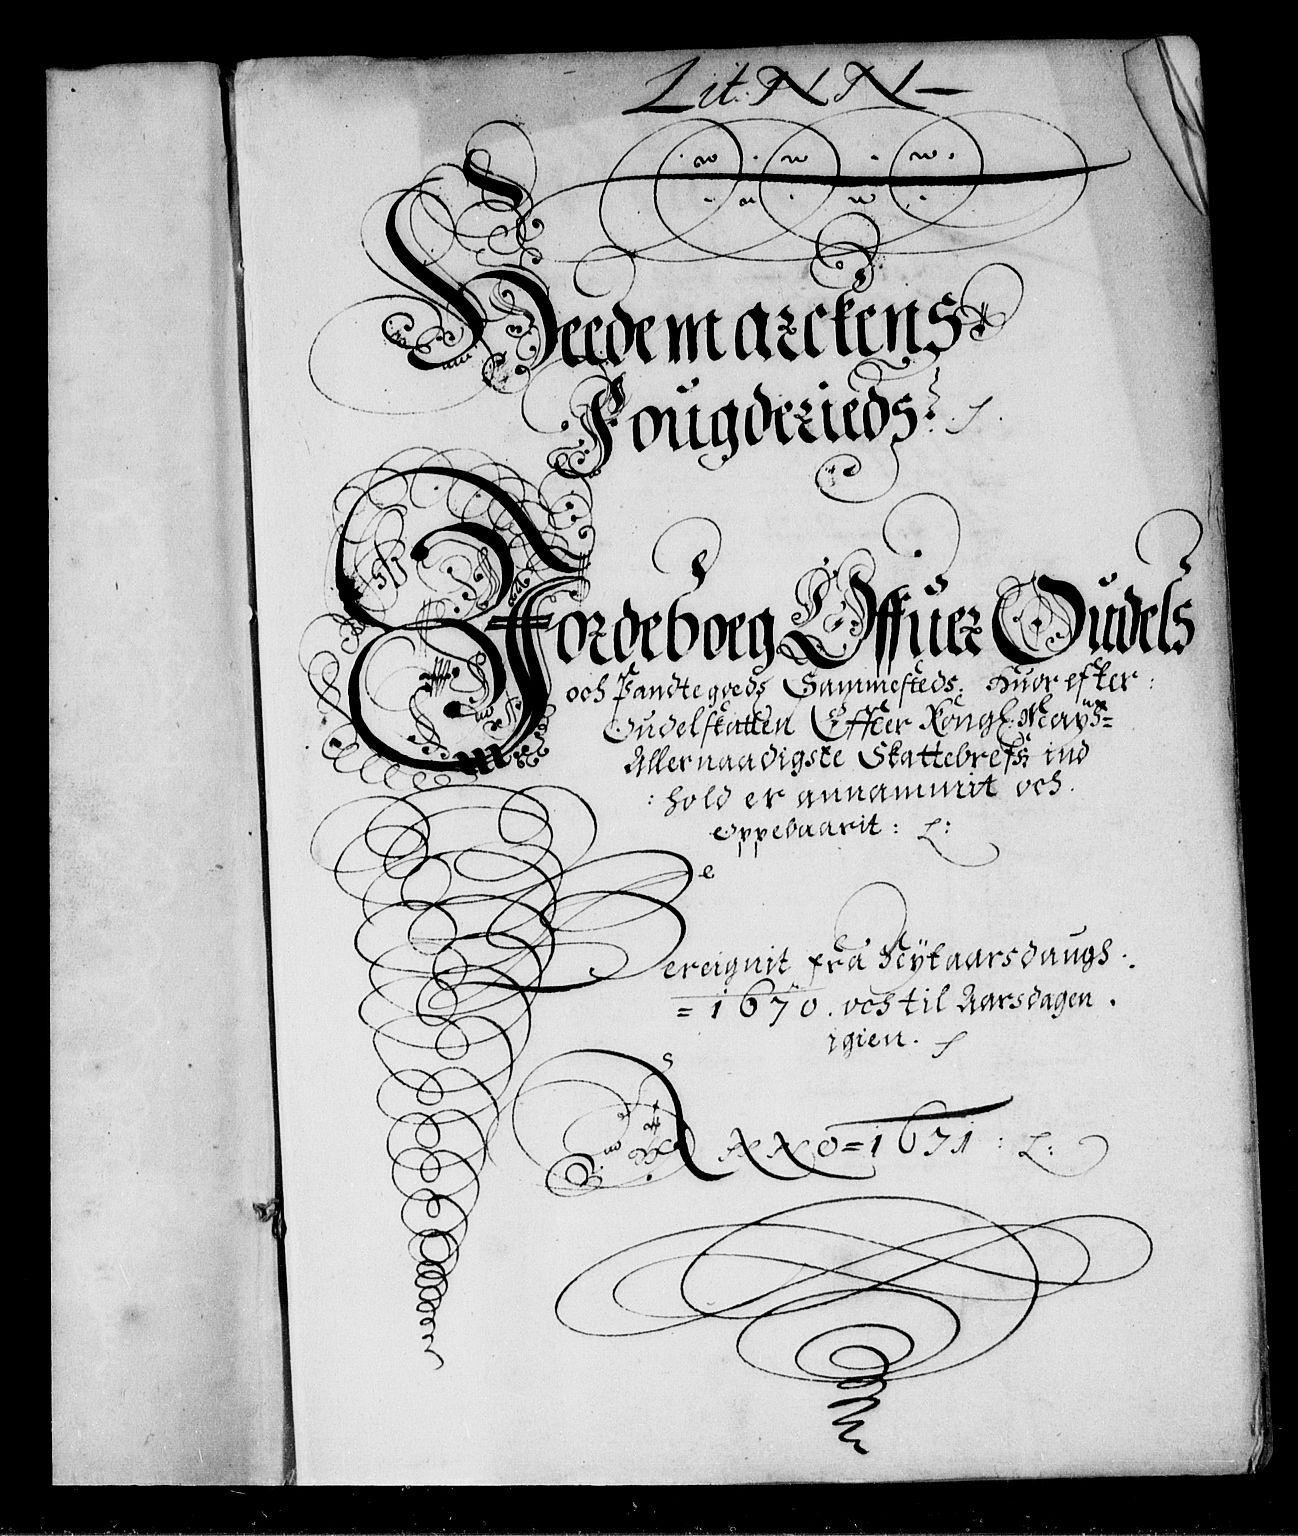 Lit: NN
Heedemarckens
Fougderieds
Jordeboeg Offuer Oudels
och Pandtegoeds Sammesteds, Huor efter
Oudelskatten Effter Kongl: Mayts
Allernaadigste Skattebrefs ind
hold er annammit och
Oppebaarit:
Bereignit fra Nytaarsdaugs
1670. och til Aarsdagen
igien.
ANNO=1671: